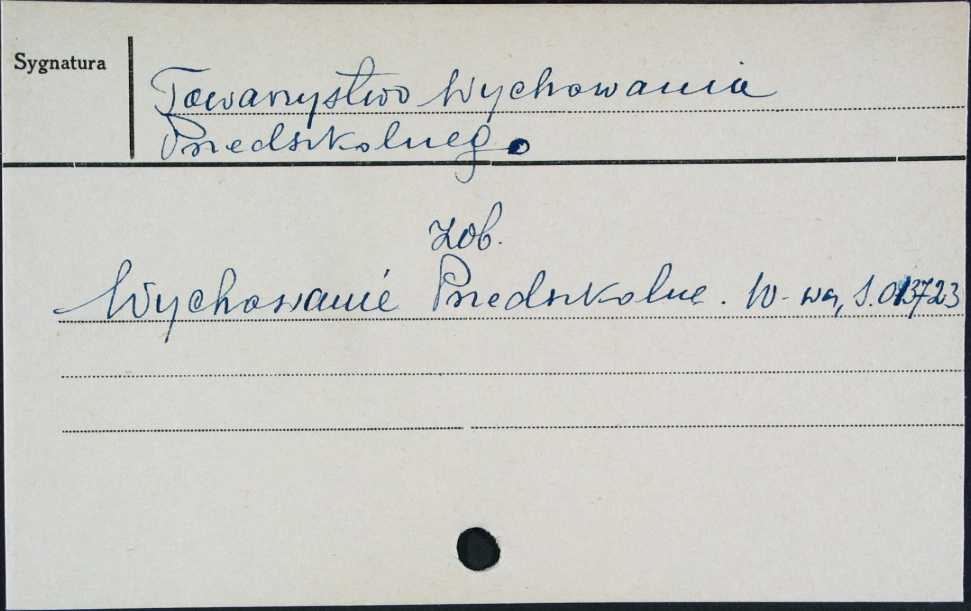 Sygnatura
Towarzystwo Wychowania
Przedszkolnego
zob.
Wychowanie Przedszkolne. W-wa, S.013723